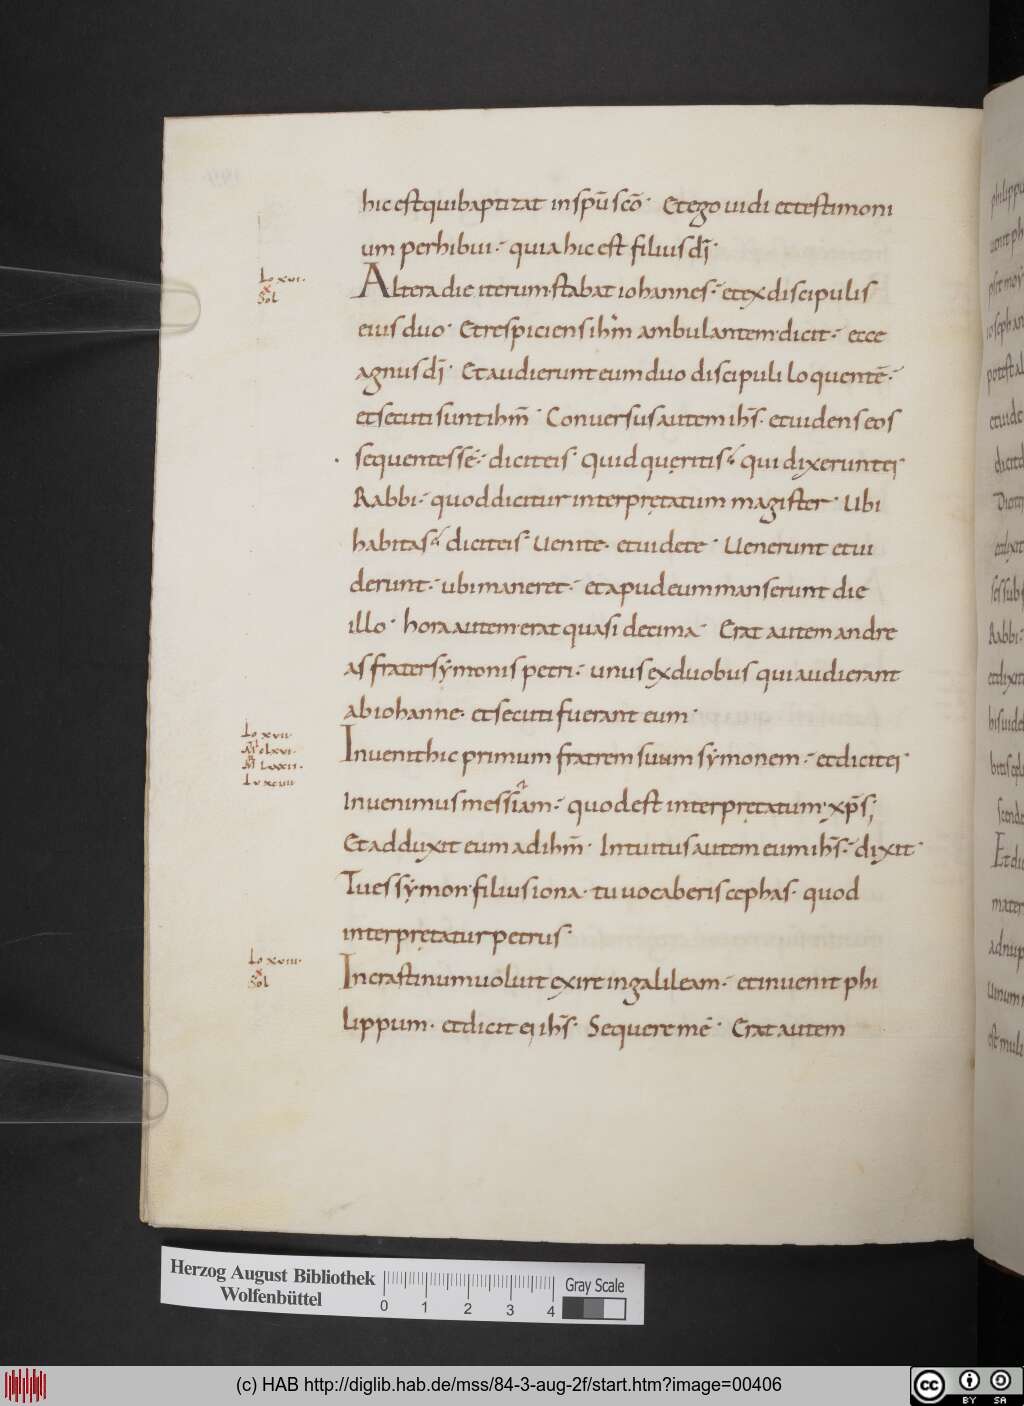 hic est qui baptizat in spū scō. Et ego uidi et testimoni
um perhibui. quia hic est filius dī.
Io xvi.
x
Sol
Altera die iterum stabat iohannes. et ex discipulis
eius duo. Et respiciens ihm̄ ambulantem dicit. ecce
agnus dī. Et audierunt eum duo discipuli loquentē.
et secuti sunt ihm̄. Conuersus autem ihs̄. et uidens eos
sequentes sē. dicit eis. Quid quęritis. qui dixerunt ei.
Rabbi. quod dicitur interpretatum magister. Ubi
habitas. dicit eis. Uenite. et uidete. Uenerunt et ui
derunt. ubi maneret. et apud eum manserunt die
illo. hora autem erat quasi decima. Erat autem andre
as frater sẏmonis petri. unus ex duobus qui audierant
ab iohanne. et secuti fuerant eum.
Io xvii.
Mt clxvi.
Inuenit hic primum fratrem suum sẏmonem. et dicit ei.
Inuenimus messiam. quod est interpretatum xp̄s;
Et adduxit eum ad ihm̄. Intuitus autem eum ihs̄. dixit.
Tu es sẏmon filius iona. tu uocaberis cephas. quod
interpretatur petrus.
Io xviii.
x
Sol
In crastinum uoluit exire in galileam. et inuenit phi
lippum. et dicit ei ihs̄. Sequere mē. Erat autem
philippu
Rabbi.
mater
Herzog August Bibliothek
Wolfenbüttel
0 1 2 3 4
Gray Scale
(c) HAB http://diglib.hab.de/mss/84-3-aug-2f/start.htm?image=00406
cc BY SA